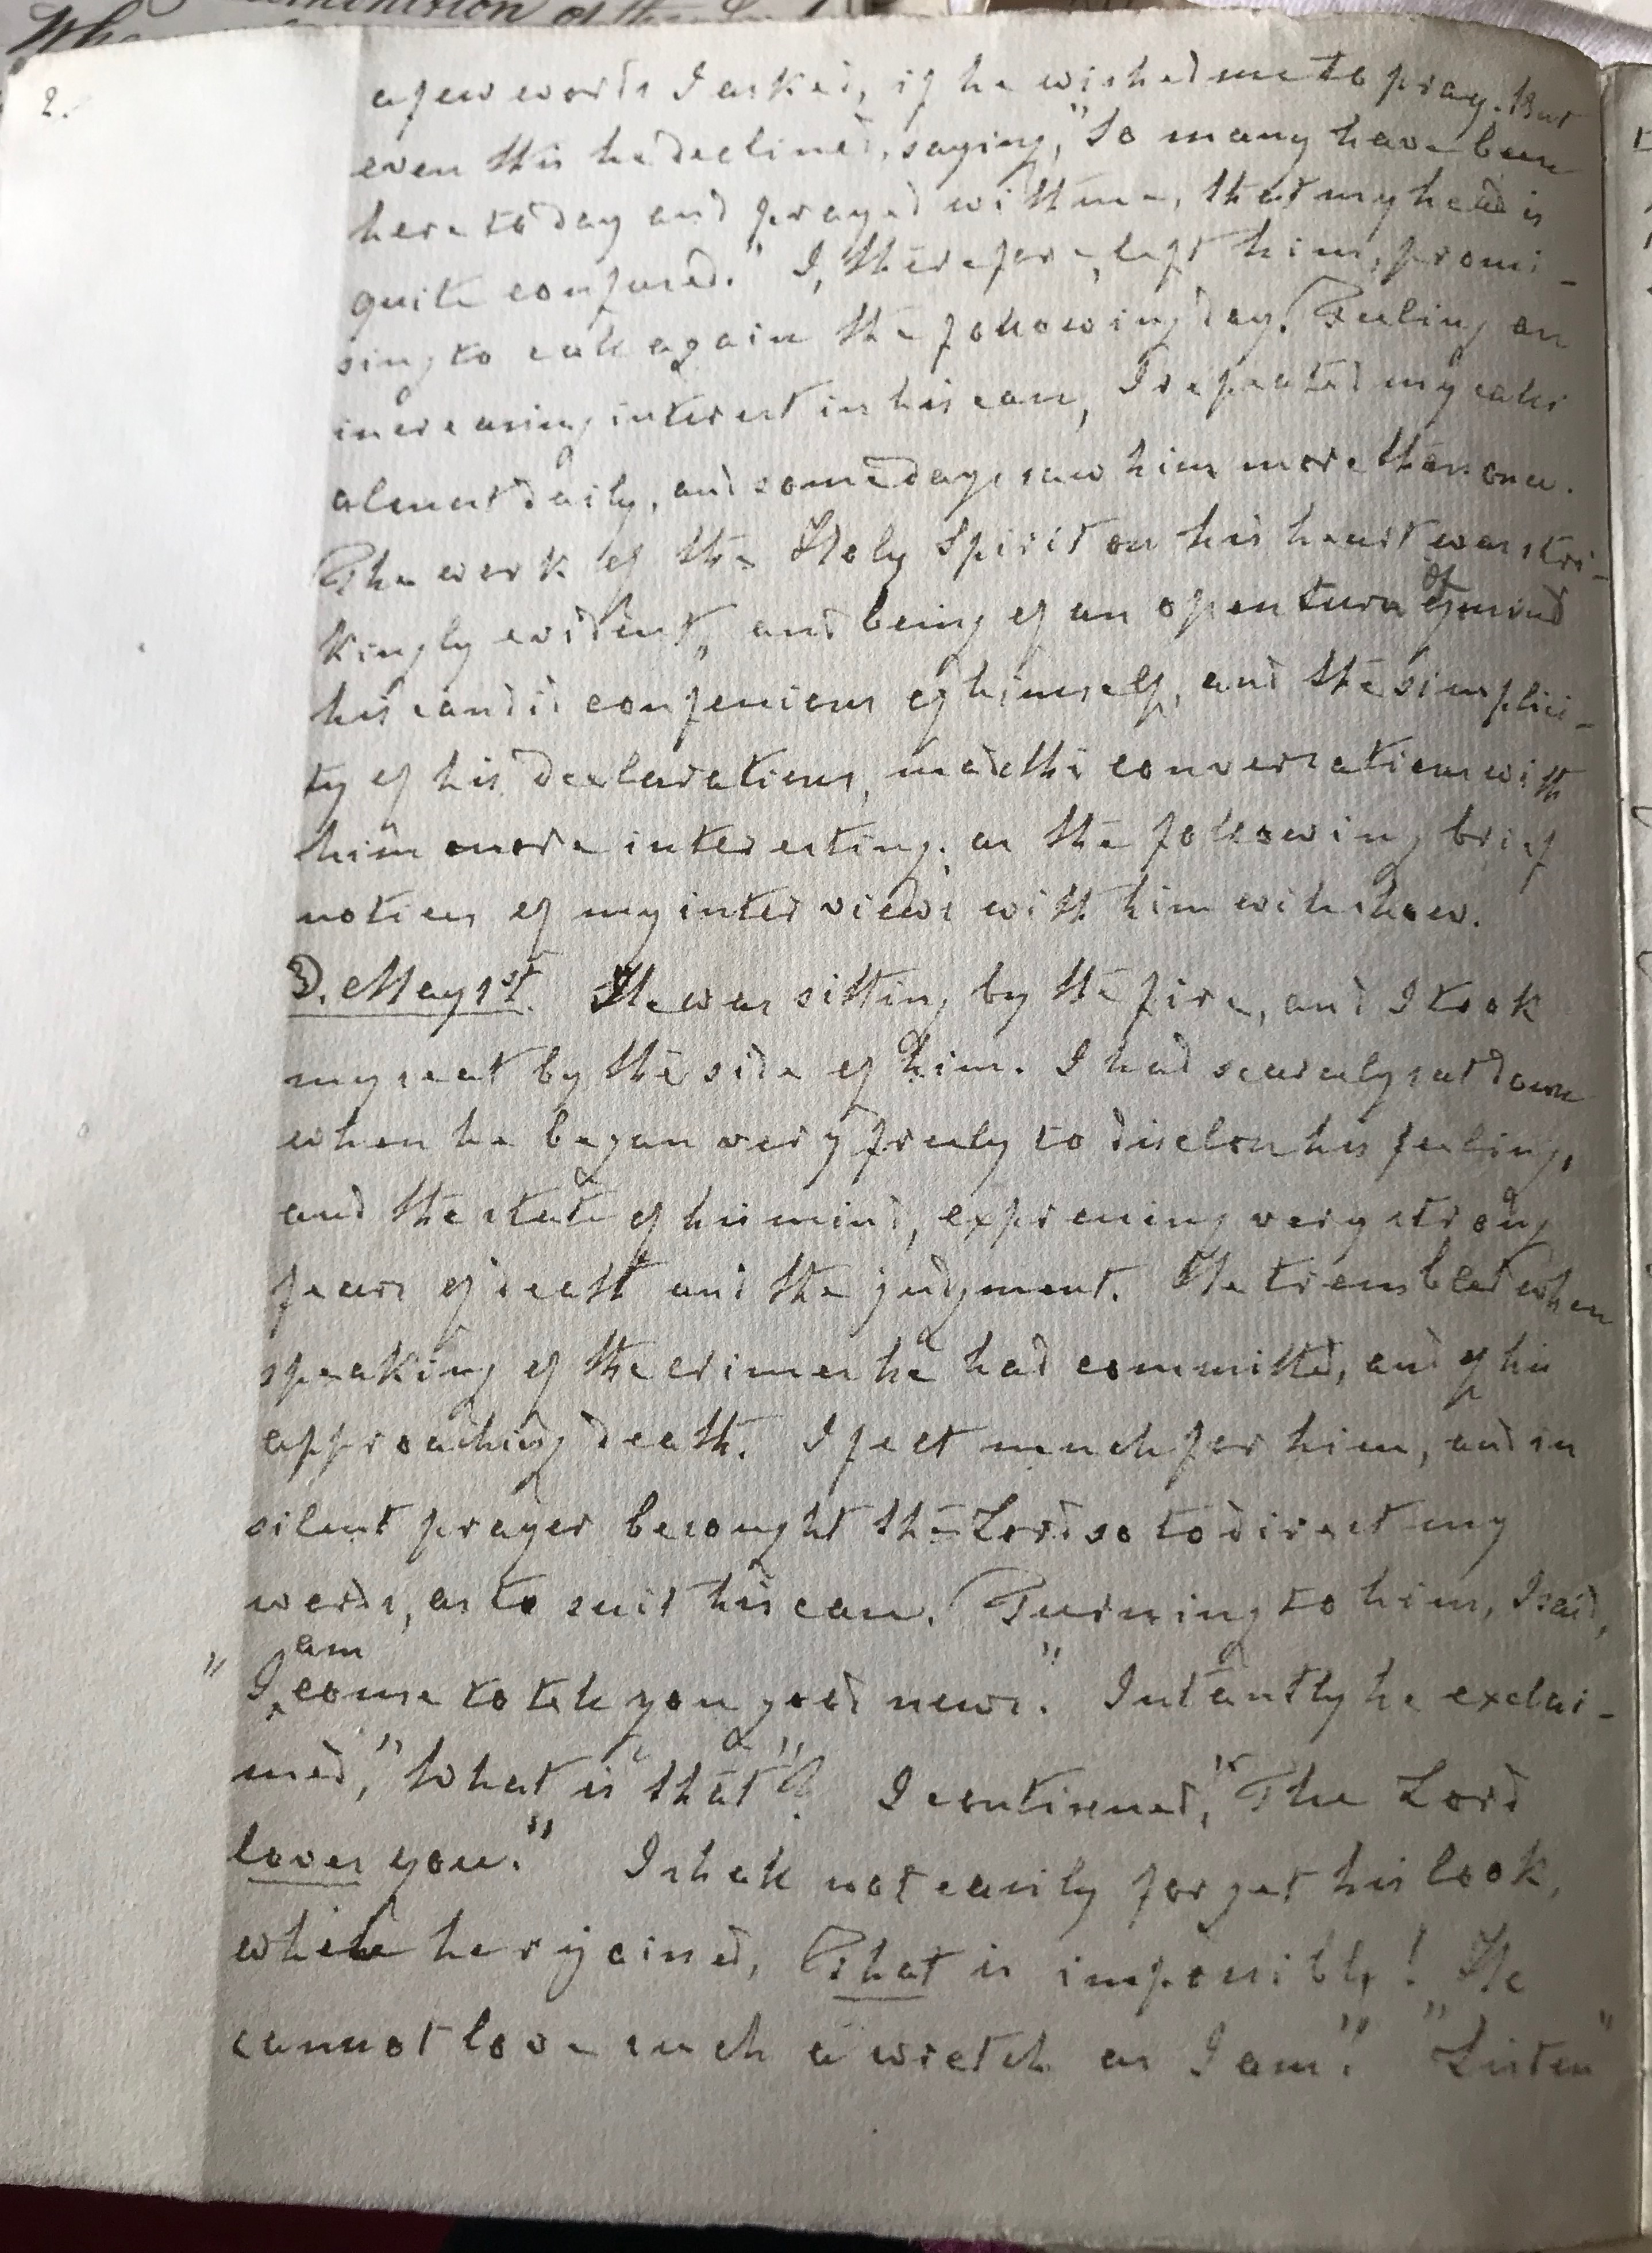 2.
a few words I asked, if he wished me to pray. But
even this he declined, saying, "So many have been
here to day and prayed with me, that my head is
quite confused." I, therefore, left him, promi-
sing to call again the following day. Feeling an
increasing interest in his case, I repeated my calls
almost daily, and some days saw him more than once.
The work of the Holy Spirit on his heart was stri-
kingly evident, and being of an open turn of mind
his candid confessions of himself, and the simplici-
ty of his declarations, made the conversations with
him more interesting, as the following brief
notices of my interviews with him will show.
D. May 1st. He was sitting by the fire, and I took
my seat by the side of him. I had scarcely sat down
when he began very freely to disclose his feelings
and the state of his mind, expressing very strong
fears of death and the judgment. He trembled when
speaking of the crimes he had committed, and of his
approaching death. I felt much for him, and in
silent prayer besought the Lord so to direct my
words, as to suit his case. Turning to him, I said,
"I am come to tell you good news." Instantly he exclai-
med, "What is that"? I continued, "The Lord
loves you." I shall not easily forget his look,
while he rejoined, That is impossible! He
cannot love such a wretch as I am." "Listen"